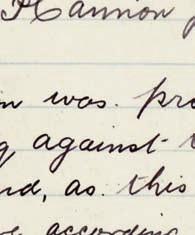 Hannon
was. pro
against
nd, as. this
according